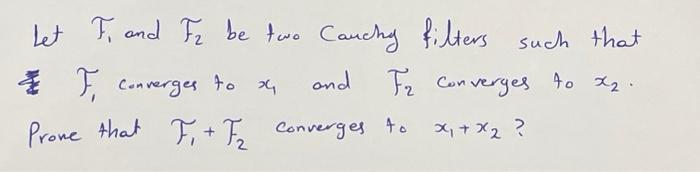 Let F₁ and F₂ be two Cauchy filters such that
F₁ converges to x₁ and F₂ converges to x₂.
Prove that F₁ + F₂ converges to x₁ + x₂ ?